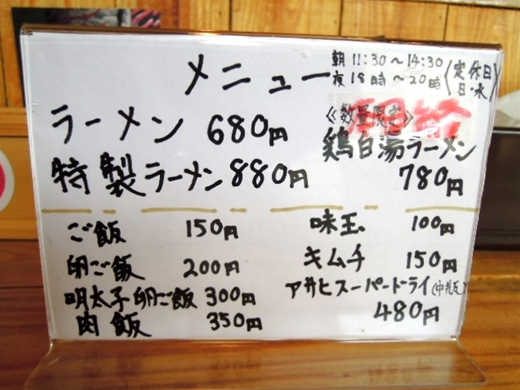 メニュー
朝 11:30~14:30
夜 18時~20時
〈定休日 日・水〉
ラーメン 680円
特製ラーメン 880円
《数量限定》
鶏白湯ラーメン
780円
ご飯 150円
卵ご飯 200円
明太子卵ご飯 300円
肉飯 350円
味玉 100円
キムチ 150円
アサヒスーパードライ(中瓶)
480円